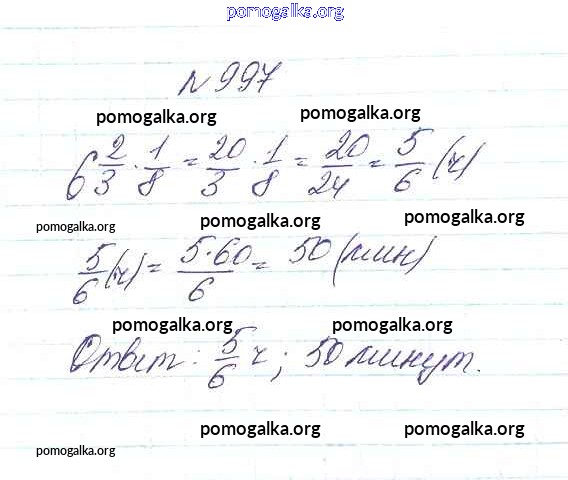 pomogalka.org
№ 997
pomogalka.org pomogalka.org
6 2/3 · 1/8 = 20/3 · 1/8 = 20/24 = 5/6 (ч)
pomogalka.org pomogalka.org pomogalka.org
5/6 (ч) = 5·60/6 = 50 (мин)
pomogalka.org pomogalka.org
Ответ: 5/6 ч; 50 минут.
pomogalka.org pomogalka.org
pomogalka.org